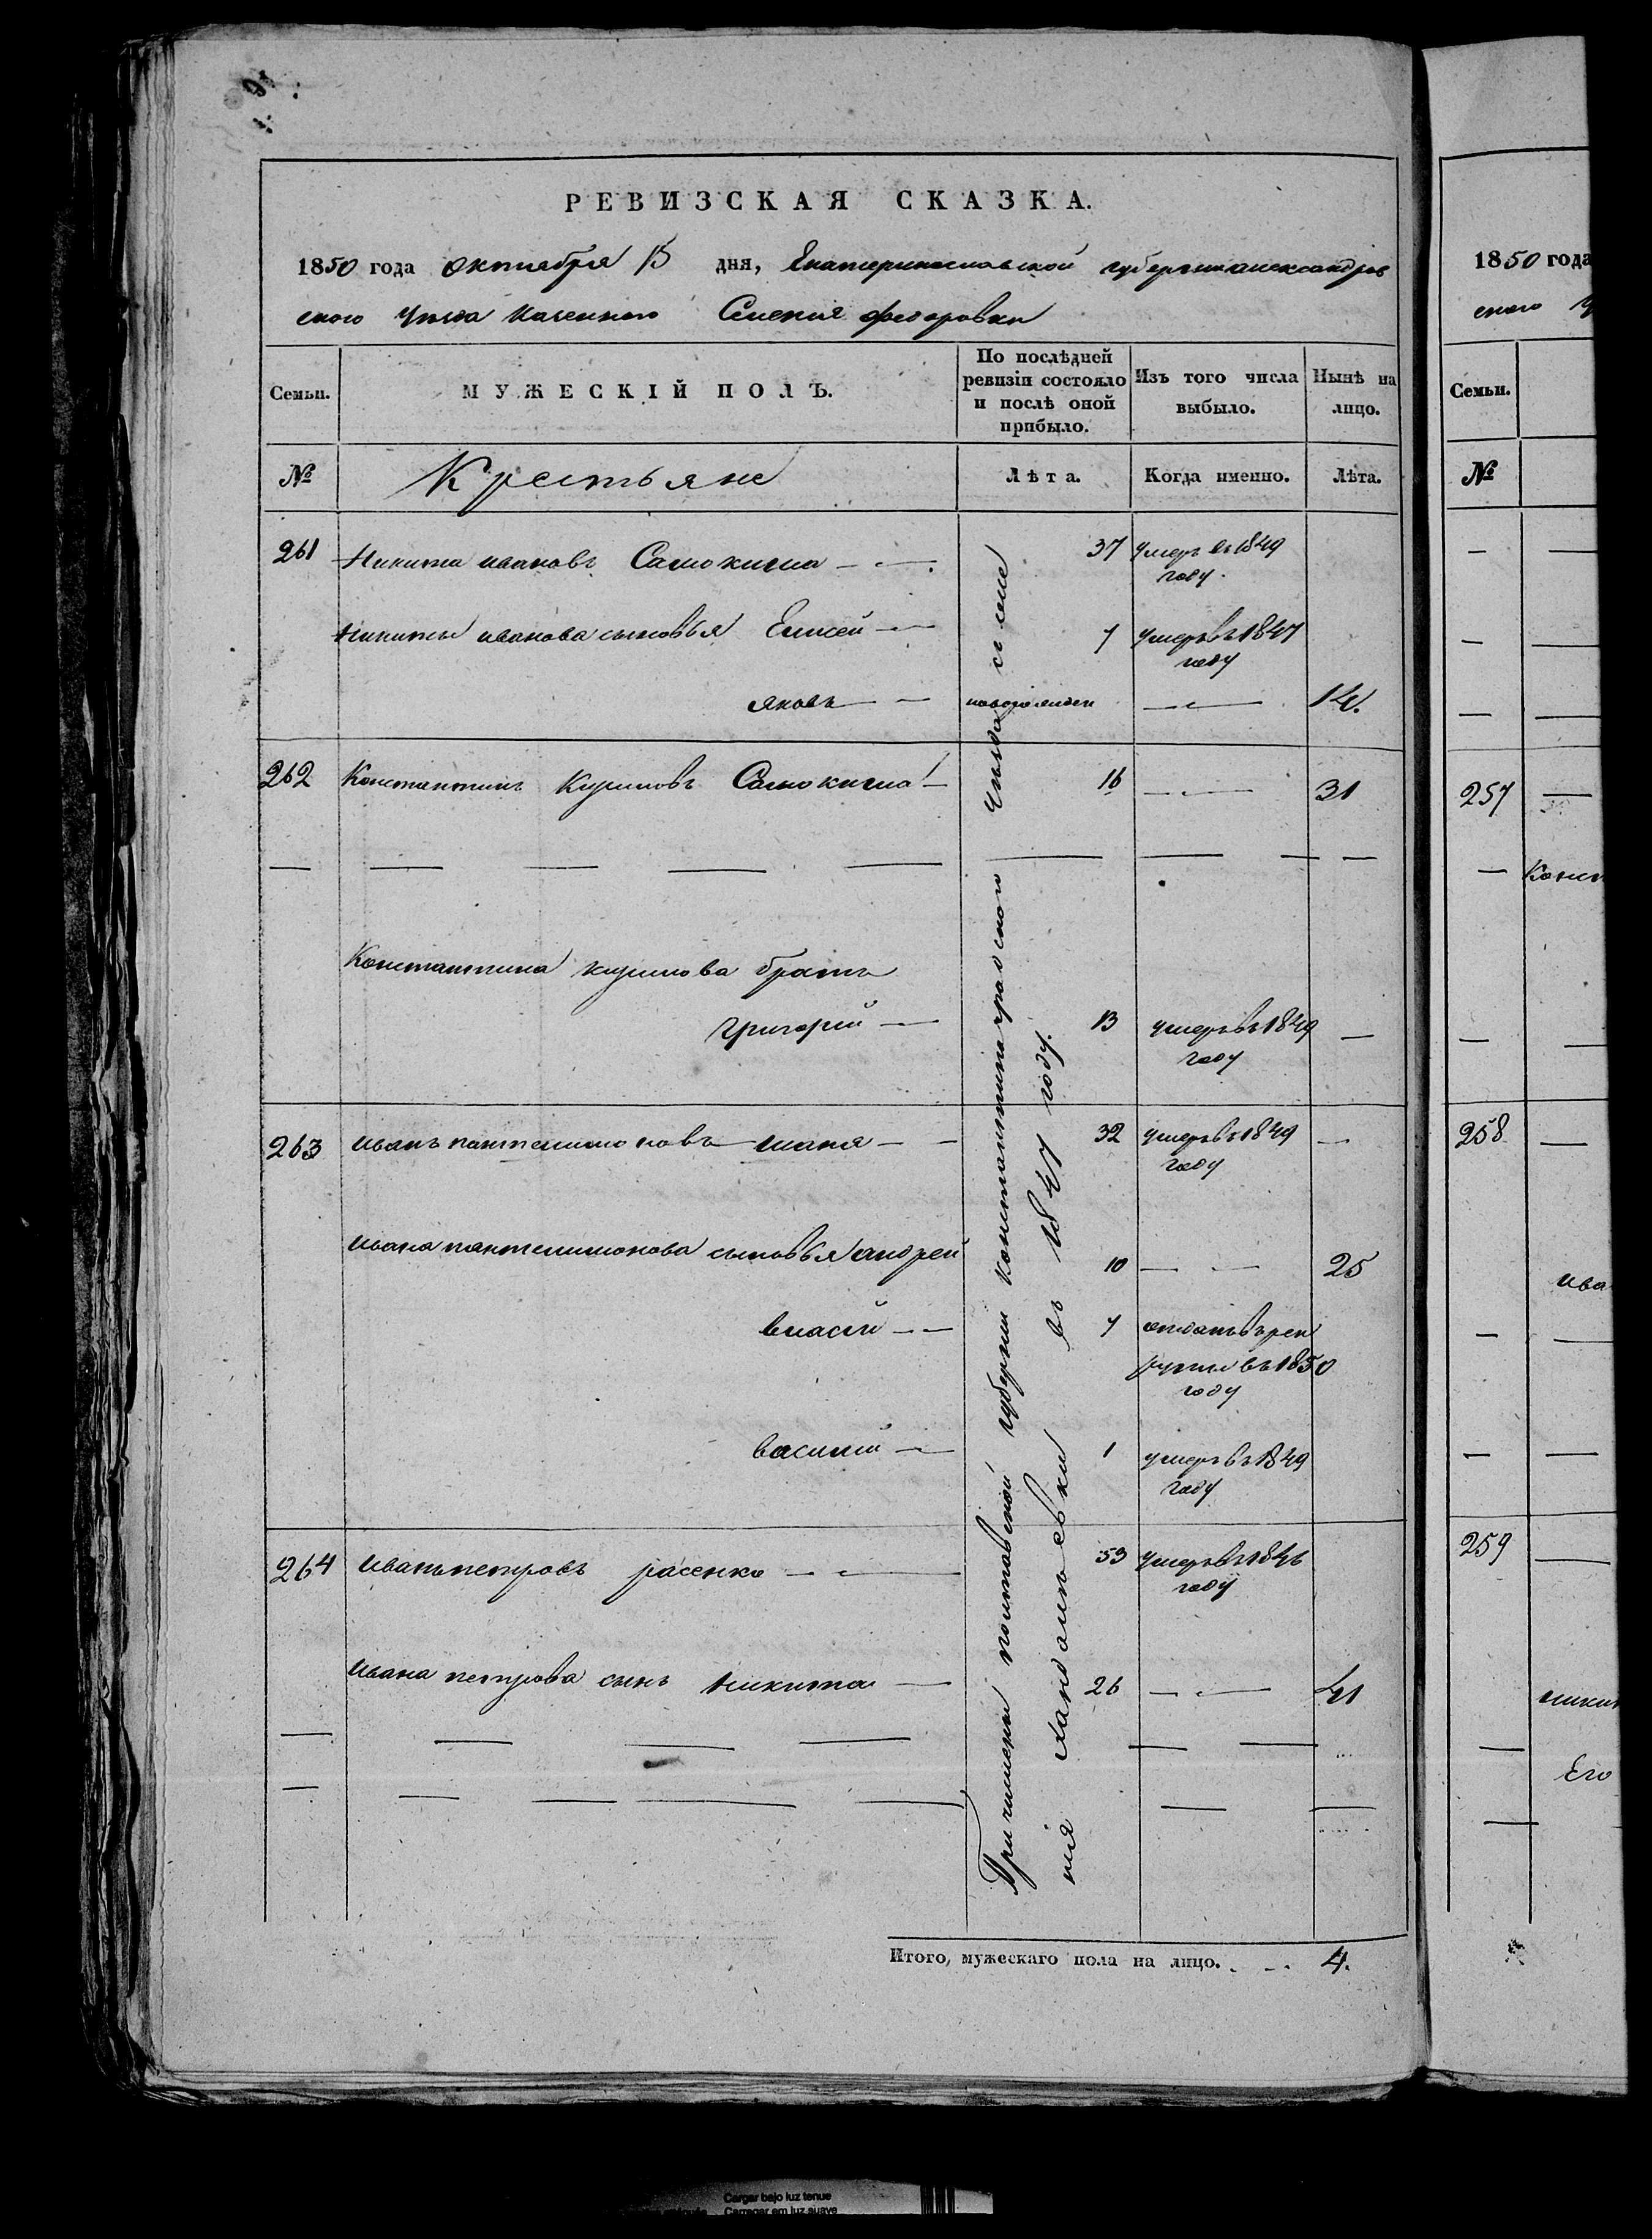 РЕВИЗСКАЯ СКАЗКА.
1850 года октября 15 дня, Екатеринославской губернии александров
ского уезда казенного Селения федоровки
Семьи.
МУЖЕСКІЙ ПОЛЪ.
По послѣдней ревизіи состояло и послѣ оной прибыло.
Изъ того числа выбыло.
Нынѣ на лицо.
№
Крестьяне
Лѣта.
Когда именно.
Лѣта.
261 Никита ивановъ Самокиша 37 умеръ въ 1849
году.
Никиты иванова сыновья Елисей 7 умеръ въ 1847
году
яковъ новорожден 14.
262 Константинъ Куриловъ Самокиша 16 31
Константина курилова братъ
григорий 13 умеръ въ 1849
году
263 иванъ пантелимоновъ 32 умеръ въ 1849
году
ивана пантелимонова сыновья андрей 10 25
власий 7 отданъ в рек
руты въ 1850
году
василий 1 умеръ въ 1849
году
264 иванъ петровъ расенко 53 умеръ въ 1846
году
ивана петрова сынъ никита 26 41
Причислены полтавской губернии константиноградского уезда из селе
ния въ 1847 году.
Итого, мужескаго пола на лицо. 4.
1850 года
ского у
Семьи.
№
257
Конст
258
ива
259
никит
Его
Cargar bajo luz tenue
Carregar em luz suave